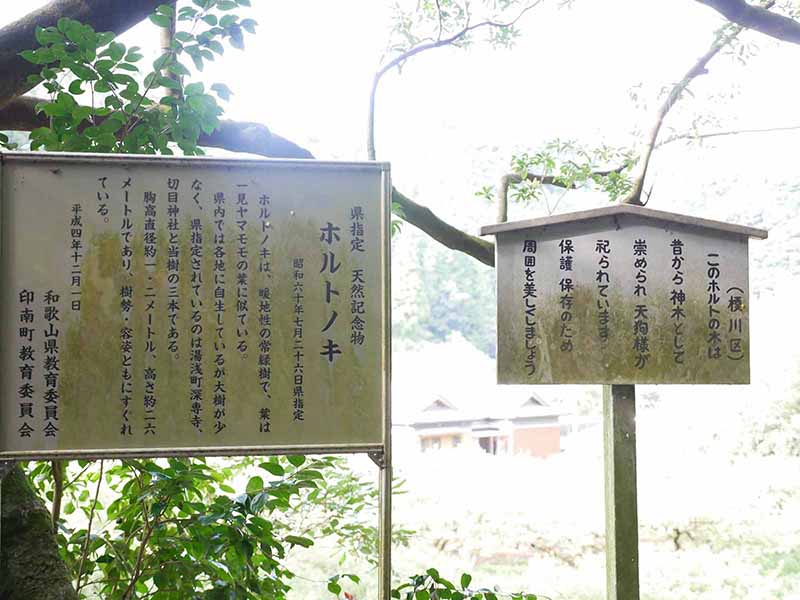 県指定　天然記念物
ホルトノキ
昭和六十年七月二十六日県指定
ホルトノキは、暖地性の常緑樹で、葉は
一見ヤマモモの葉に似ている。
県内では各地に自生しているが大樹が少
なく、県指定されているのは湯浅町深専寺、
切目神社と当樹の三本である。
胸高直径約一・二メートル、高さ約二六
メートルであり、樹勢・容姿ともにすぐれ
ている。
平成四年十二月一日
和歌山県教育委員会
印南町教育委員会
（樮川区）
このホルトの木は
昔から 神木として
崇められ 天狗様が
祀られています
保護 保存のため
周囲を美しくしましょう